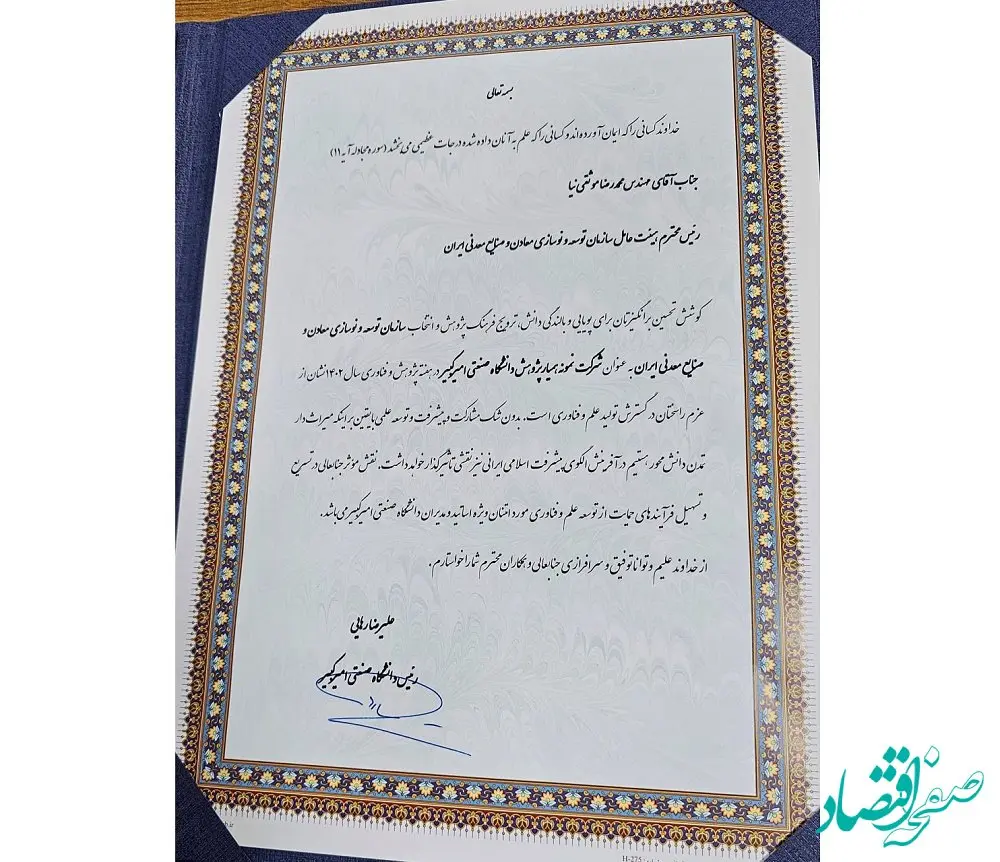 بسمه تعالی
خداوند کسانی را که ایمان آورده‌اند و کسانی را که علم به آنان داده شده درجات عظیمی می‌بخشد (سوره مجادله آیه ۱۱)
جناب آقای مهندس محمدرضا موثقی نیا
رئیس محترم هیئت عامل سازمان توسعه و نوسازی معادن و صنایع معدنی ایران
کوشش تحسین برانگیزتان برای پویایی و بالندگی دانش، ترویج فرهنگ پژوهش و انتخاب سازمان توسعه و نوسازی معادن و
صنایع معدنی ایران به عنوان شرکت نمونه همیار پژوهش دانشگاه صنعتی امیرکبیر در هفته پژوهش و فناوری سال ۱۴۰۲ نشان از
عزم راسختان در گسترش تولید علم و فناوری است. بدون شک مشارکت و پیشرفت و توسعه علمی با یقین بر اینکه میراث دار
تمدن دانش محور هستیم در آفرینش الگوی پیشرفت اسلامی ایرانی نیز نقشی تاثیرگذار خواهد داشت. نقش مؤثر جنابعالی در تسریع
و تسهیل فرآیندهای حمایت از توسعه علم و فناوری مورد امتنان ویژه اساتید و مدیران دانشگاه صنعتی امیرکبیر می باشد.
از خداوند علیم و توانا توفیق و سرافرازی جنابعالی و همکاران محترم شما را خواستارم.
علیرضا رهایی
رئیس دانشگاه صنعتی امیرکبیر
H-275
صفحه اقتصاد